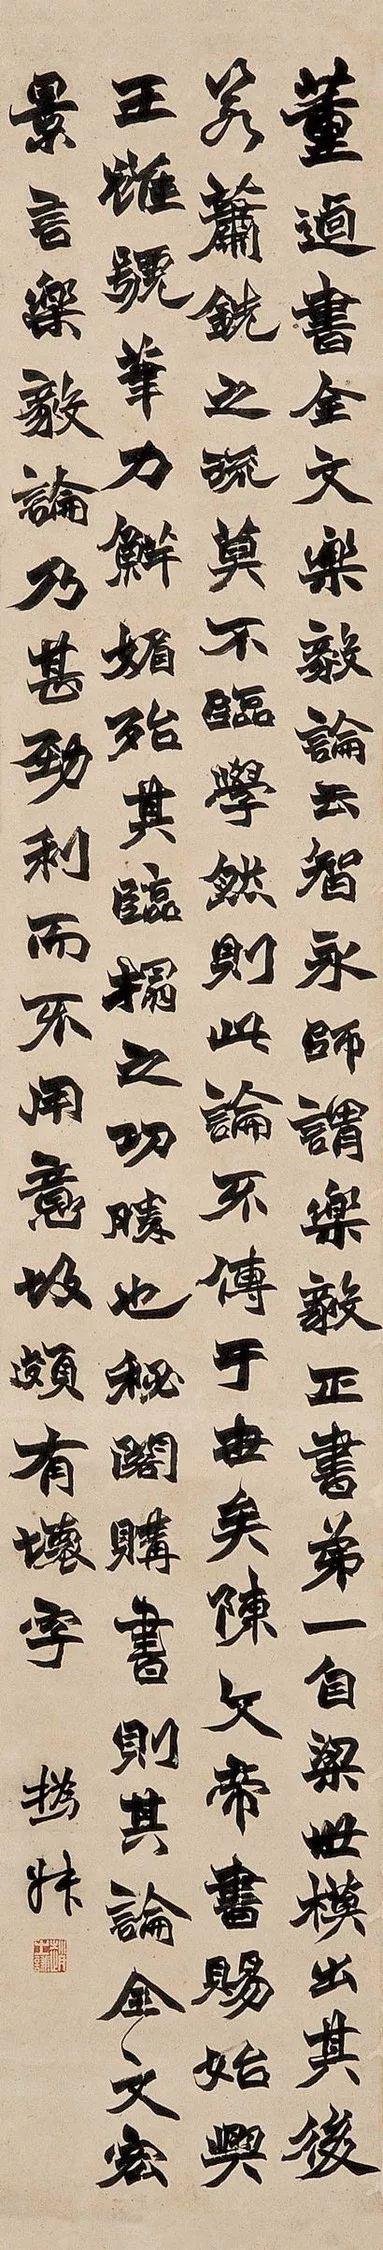 董逌書全文樂毅論云智永師謂樂毅正書第一自梁世模出其後
若蕭銑之流莫不臨學然則此論不傳于世矣陳文帝書賜始興
王雖號筆力鮮媚殆其臨搨之功勝也秘閣購書則其論全文宏
景言樂毅論乃甚勁利而不用意故頗有壞字
撝叔